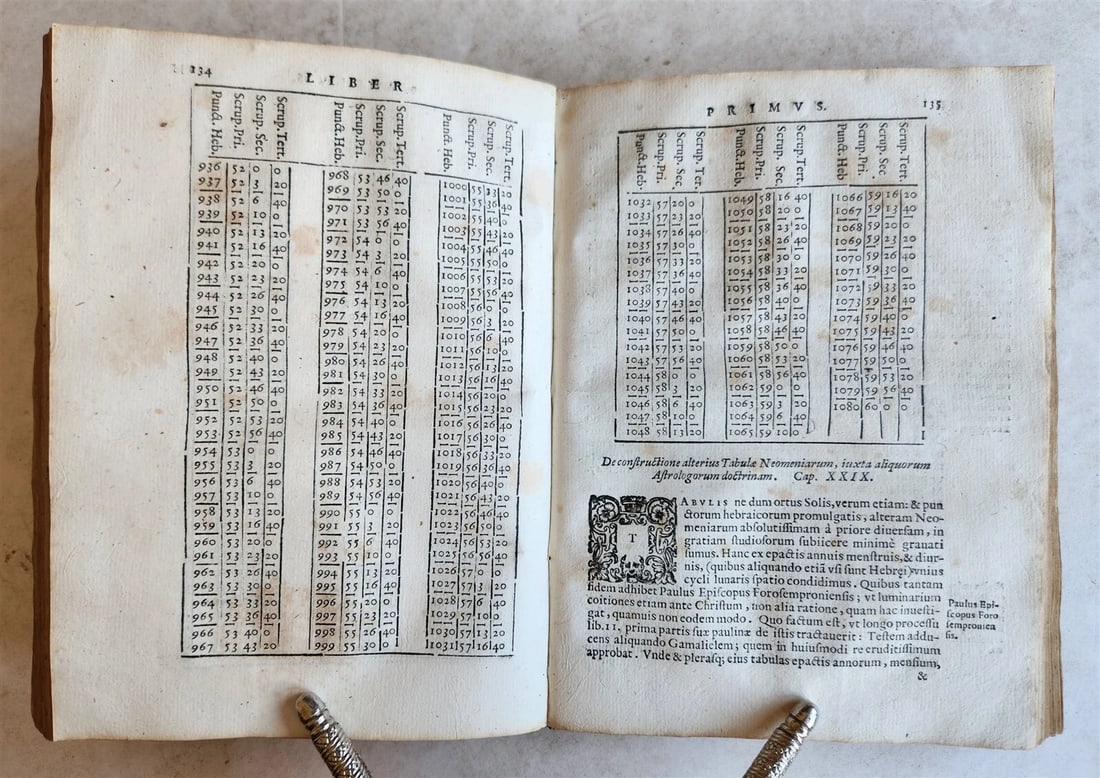 134
LIBER
Punct. Heb. Scrup. Pri. Scrup. Sec. Scrup. Tert.
936 52 0 0
937 52 3 20
938 52 6 40
939 52 10 0
940 52 13 20
941 52 16 40
942 52 20 0
943 52 23 20
944 52 26 40
945 52 30 0
946 52 33 20
947 52 36 40
948 52 40 0
949 52 43 20
950 52 46 40
951 52 50 0
952 52 53 20
953 52 56 40
954 53 0 0
955 53 3 20
956 53 6 40
957 53 10 0
958 53 13 20
959 53 16 40
960 53 20 0
961 53 23 20
962 53 26 40
963 53 30 0
964 53 33 20
965 53 36 40
966 53 40 0
967 53 43 20
Punct. Heb. Scrup. Pri. Scrup. Sec. Scrup. Tert.
968 53 46 40
969 53 50 0
970 53 53 20
971 53 56 40
972 54 0 0
973 54 3 20
974 54 6 40
975 54 10 0
976 54 13 20
977 54 16 40
978 54 20 0
979 54 23 20
980 54 26 40
981 54 30 0
982 54 33 20
983 54 36 40
984 54 40 0
985 54 43 20
986 54 46 40
987 54 50 0
988 54 53 20
989 54 56 40
990 55 0 0
991 55 3 20
992 55 6 40
993 55 10 0
994 55 13 20
995 55 16 40
996 55 20 0
997 55 23 20
998 55 26 40
999 55 30 0
Punct. Heb. Scrup. Pri. Scrup. Sec. Scrup. Tert.
1000 55 33 20
1001 55 36 40
1002 55 40 0
1003 55 43 20
1004 55 46 40
1005 55 50 0
1006 55 53 20
1007 55 56 40
1008 56 0 0
1009 56 3 20
1010 56 6 40
1011 56 10 0
1012 56 13 20
1013 56 16 40
1014 56 20 0
1015 56 23 20
1016 56 26 40
1017 56 30 0
1018 56 33 20
1019 56 36 40
1020 56 40 0
1021 56 43 20
1022 56 46 40
1023 56 50 0
1024 56 53 20
1025 56 56 40
1026 57 0 0
1027 57 3 20
1028 57 6 40
1029 57 10 0
1030 57 13 20
1031 57 16 40
PRIMVS.
135
Punct. Heb. Scrup. Pri. Scrup. Sec. Scrup. Ter.
1032 57 20 0
1033 57 23 20
1034 57 26 40
1035 57 30 0
1036 57 33 20
1037 57 36 40
1038 57 40 0
1039 57 43 20
1040 57 46 40
1041 57 50 0
1042 57 53 20
1043 57 56 40
1044 58 0 0
1045 58 3 20
1046 58 6 40
1047 58 10 0
1048 58 13 20
Punct. Heb. Scrup. Pri. Scrup. Sec. Scrup. Tert.
1049 58 16 40
1050 58 20 0
1051 58 23 20
1052 58 26 40
1053 58 30 0
1054 58 33 20
1055 58 36 40
1056 58 40 0
1057 58 43 20
1058 58 46 40
1059 58 50 0
1060 58 53 20
1061 58 56 40
1062 59 0 0
1063 59 3 20
1064 59 6 40
1065 59 10 0
Punct. Heb. Scrup. Pri. Scrup. Sec. Scrup. Tert.
1066 59 16 20
1067 59 13 40
1068 59 20 0
1069 59 23 20
1070 59 26 40
1071 59 30 0
1072 59 33 20
1073 59 36 40
1074 59 40 0
1075 59 43 20
1076 59 46 40
1077 59 50 0
1078 59 53 20
1079 59 56 40
1080 60 0 0
De constructione alterius Tabulæ Neomeniarum, iuxta aliquorum
Astrologorum doctrinam. Cap. XXIX.
TABVLIS ne dum ortus Solis, verum etiam: & pun
ctorum hebraicorum promulgatis, alteram Neo-
meniarum absolutissimam à priore diuersam, in
gratiam studiosorum subiicere minimè grauati
sumus. Hanc ex epactis annuis menstruis, & diur-
nis, (quibus aliquando etiā vsi sunt Hebrei) vnius
cycli lunaris spatio condidimus. Quibus tantam
fidem adhibet Paulus Episcopus Forosemproniensis; vt luminarium
coitiones etiam ante Christum, non alia ratione, quam hac inuesti-
gat, quamuis non eodem modo. Quo factum est, vt longo processu
lib. 11. prima partis suæ paulinæ de istis tractauerit: Testem addu-
cens aliquando Gamalielem; quem in huiusmodi re eruditissimum
approbat. Vnde & plerasq; eius tabulas epactis annorum, mensium,
&
Paulus Epi-
scopus Foro
semproniensis.